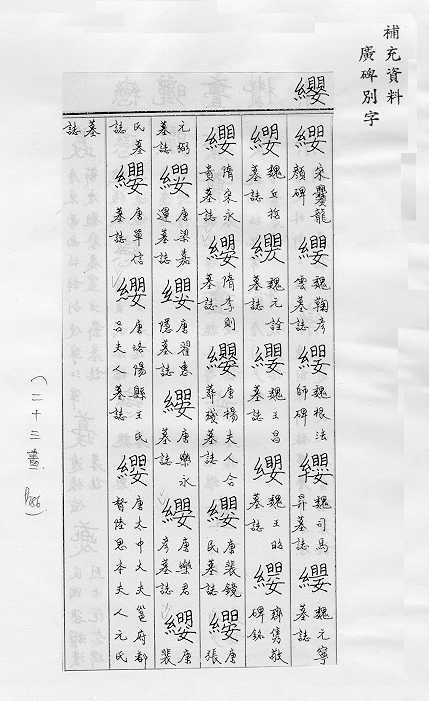 補充資料
廣碑別字
纓
纓 宋爨龍顏碑 纓 魏鞠彥雲墓誌 纓 魏根法師碑 纓 魏司馬昇墓誌 纓 魏元寧墓誌
纓 魏丘哲墓誌 纓 魏元詮墓誌 纓 魏王昌墓誌 纓 魏王㫬墓誌 纓 齊雋敬碑銘
纓 隋宋永貴墓誌 纓 隋李則墓誌 纓 唐楊夫人合葬殘墓誌 纓 唐裴鏡民墓誌 纓 唐張
元弼墓誌 纓 唐梁嘉運墓誌 纓 唐翟惠隱墓誌 纓 唐樂永墓誌 纓 唐樂君彥墓誌 纓 唐裴
氏墓誌 纓 唐單信墓誌 纓 唐洛陽縣王氏呂夫人墓誌 纓 唐太中大夫邕府都督陸思本夫人元氏
墓誌
(二十三畫 P286)